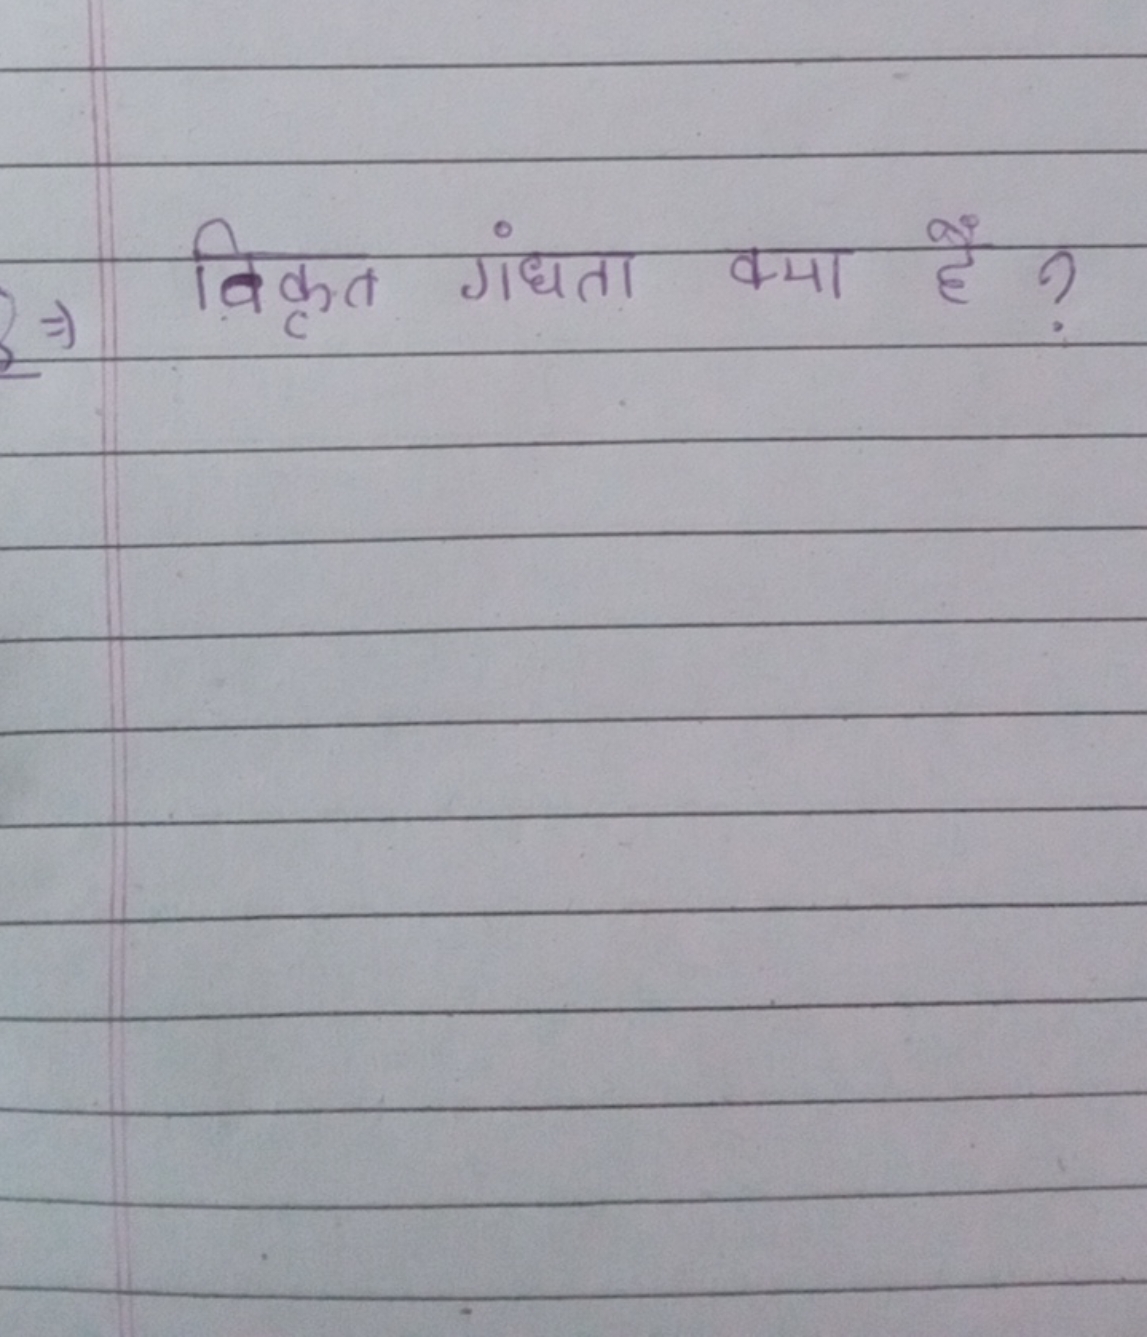 ⇒ विकृत गंधता क्या हैं ?